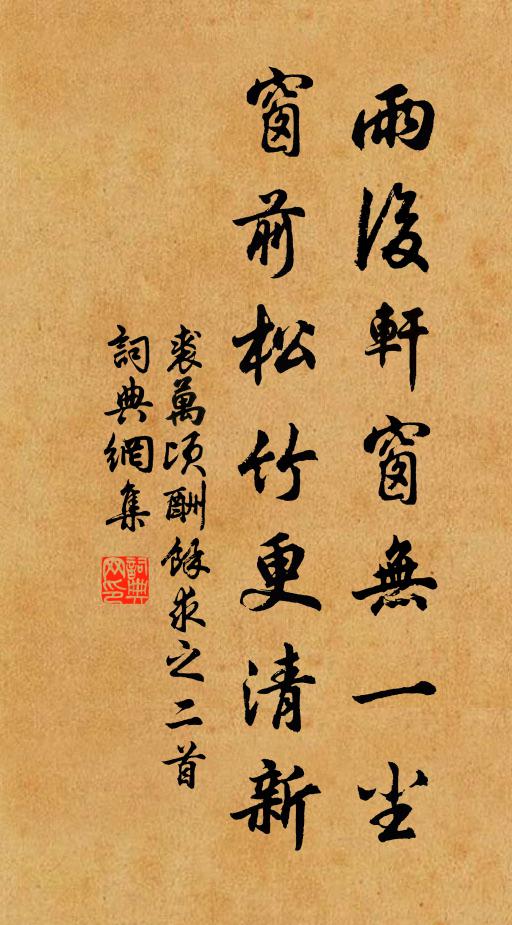 雨後軒窗無一尘
窗前松竹更清新
裘萬頃酬餘求之二首
詞典網集
詞典网印